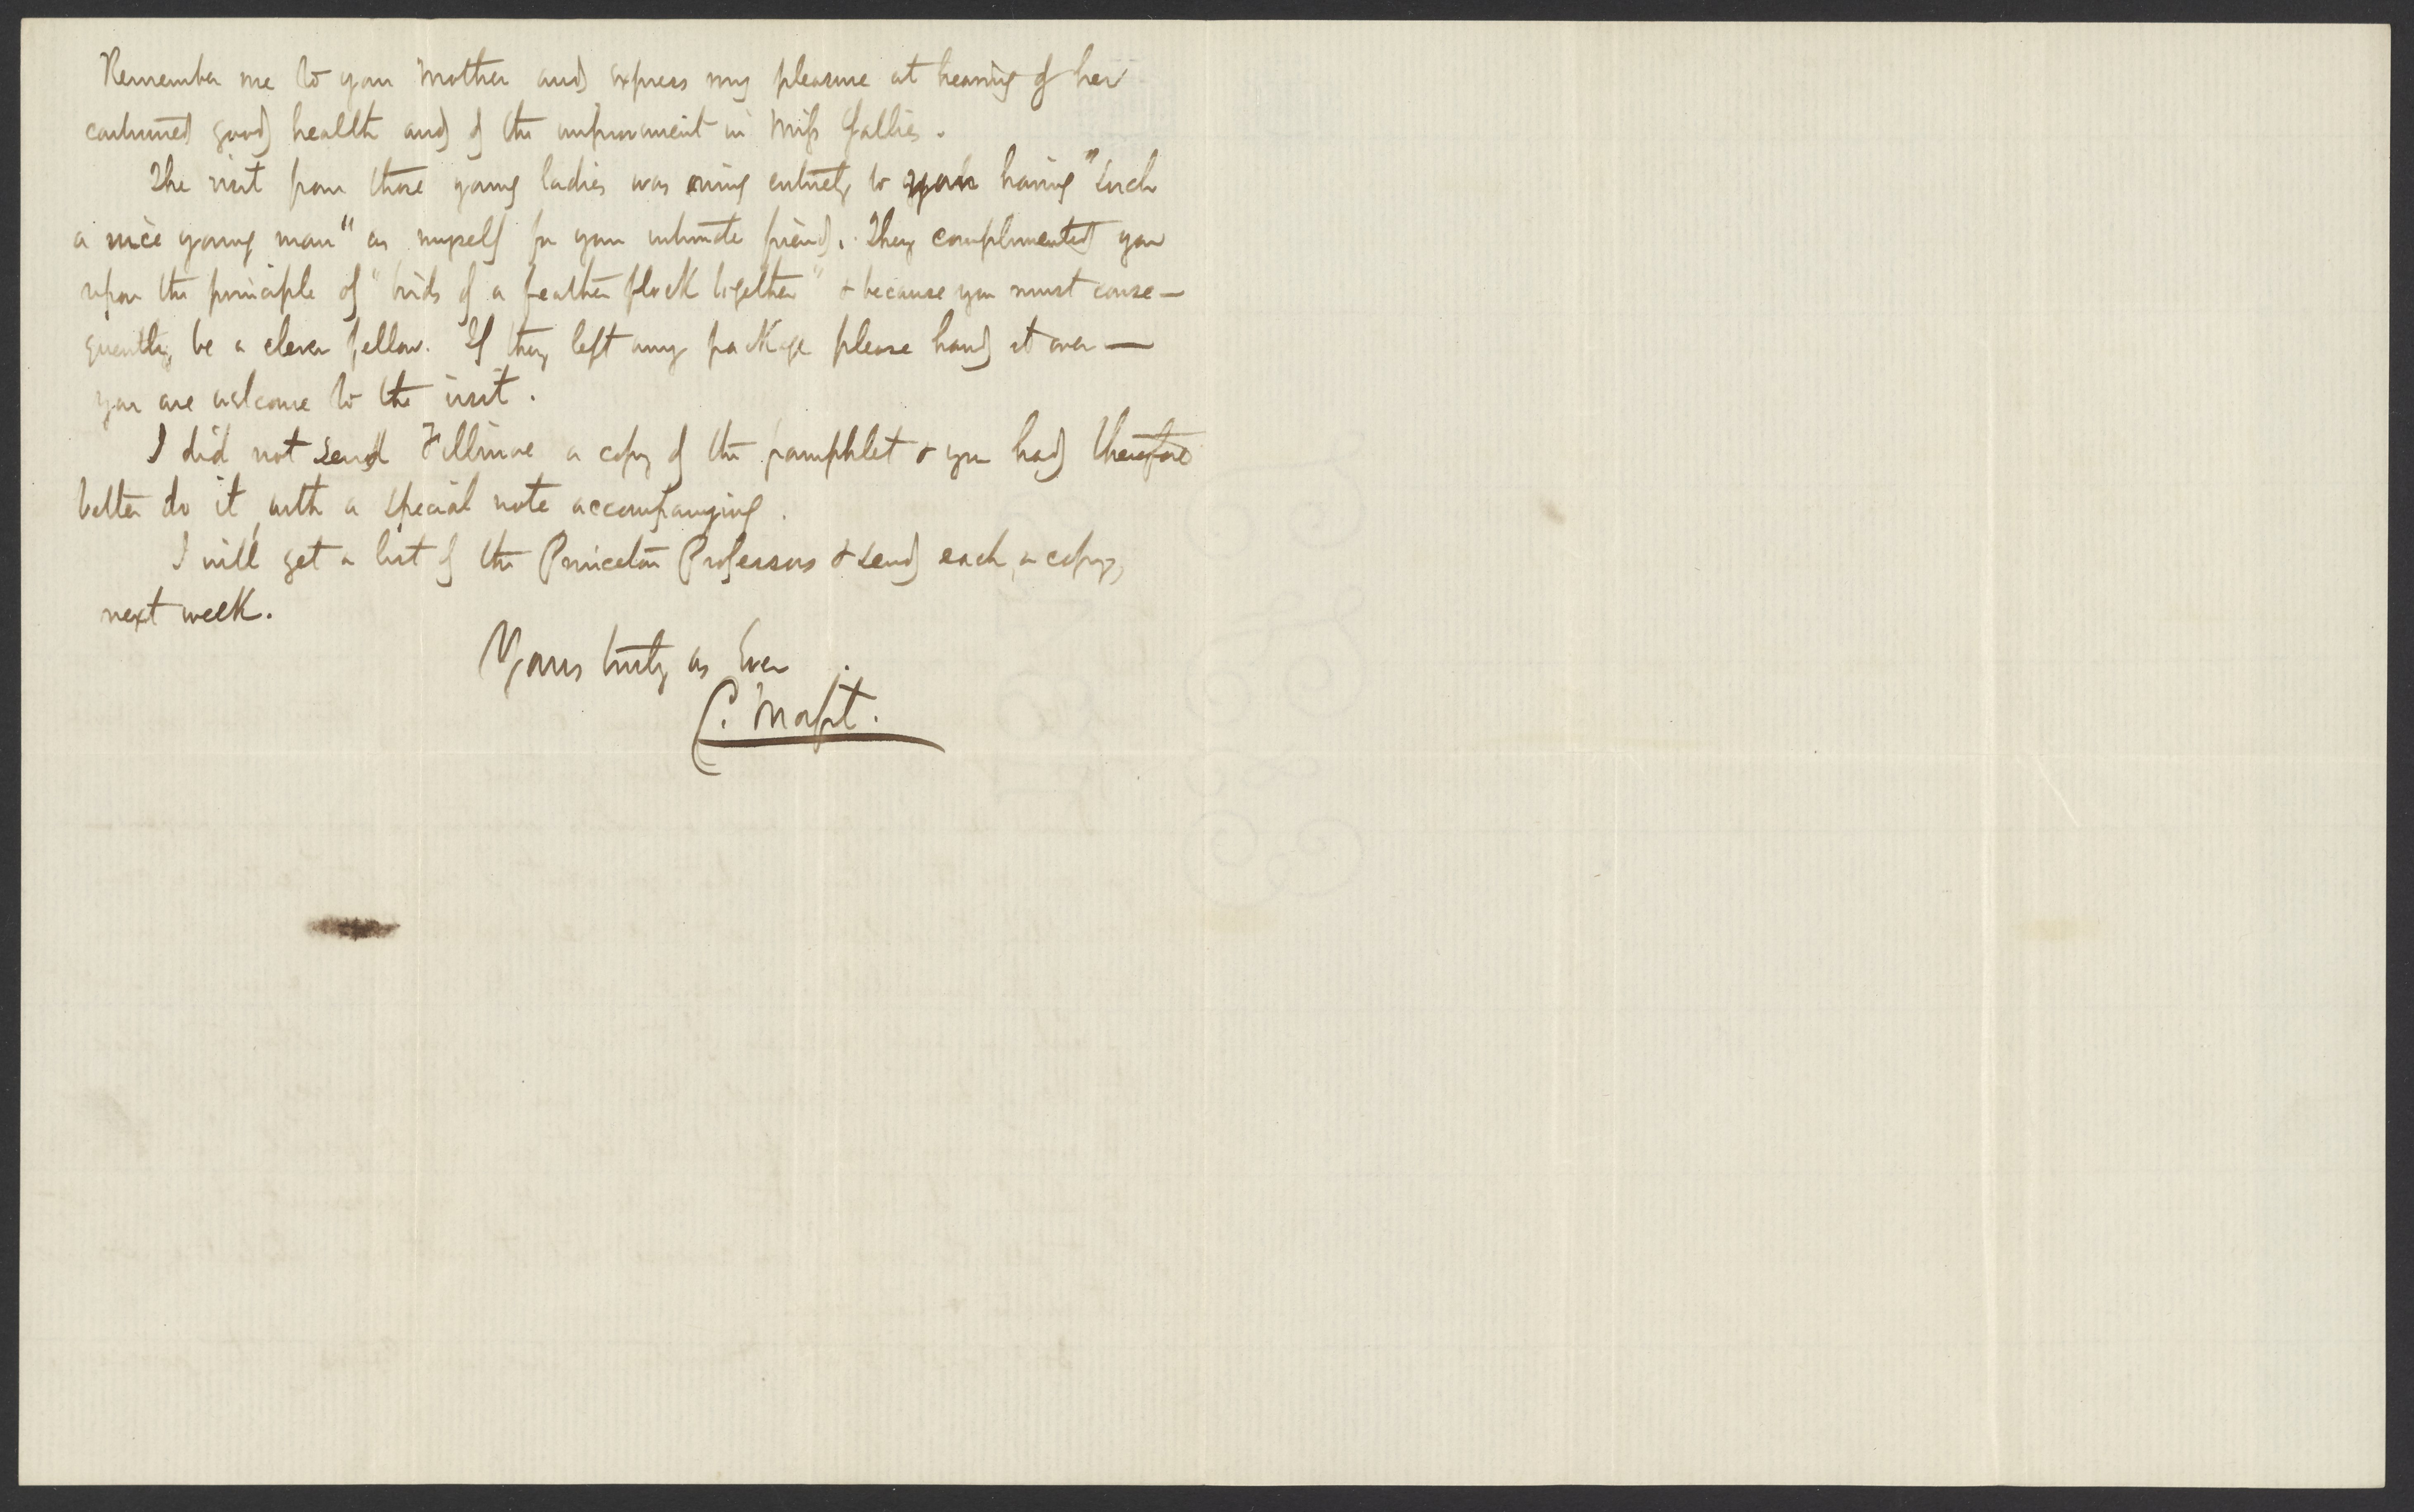 Remember me to your Mother and express my pleasure at hearing of her
continued good health and of the improvement in Miss Sallie's.
The visit from those young ladies was owing entirely to your having "such
a nice young man" as myself for your intimate friend. They complimented you
upon the principle of "birds of a feather flock together" & because you must conse-
quently be a clever fellow. If they left any package please hand it over —
you are welcome to the visit.
I did not send Fillmore a copy of the pamphlet & you had therefore
better do it, with a special note accompanying.
I will get a list of the Princeton Professors & send each a copy,
next week.
Yours truly as Ever
C. Morfit.